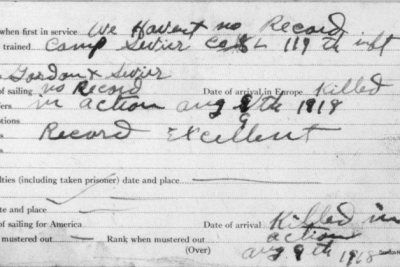 when first in service We Havent no Record
trained Camp Sevier Co L 119th inft
Gordon & Sevier
of sailing no Record Date of arrival in Europe Killed
fers in action aug 9th 1918
ptions 9
s Record Excellent
s
lties (including taken prisoner) date and place
ate and place
of sailing for America Date of arrival Killed in
mustered out — Rank when mustered out action
(Over) aug 9th 1918